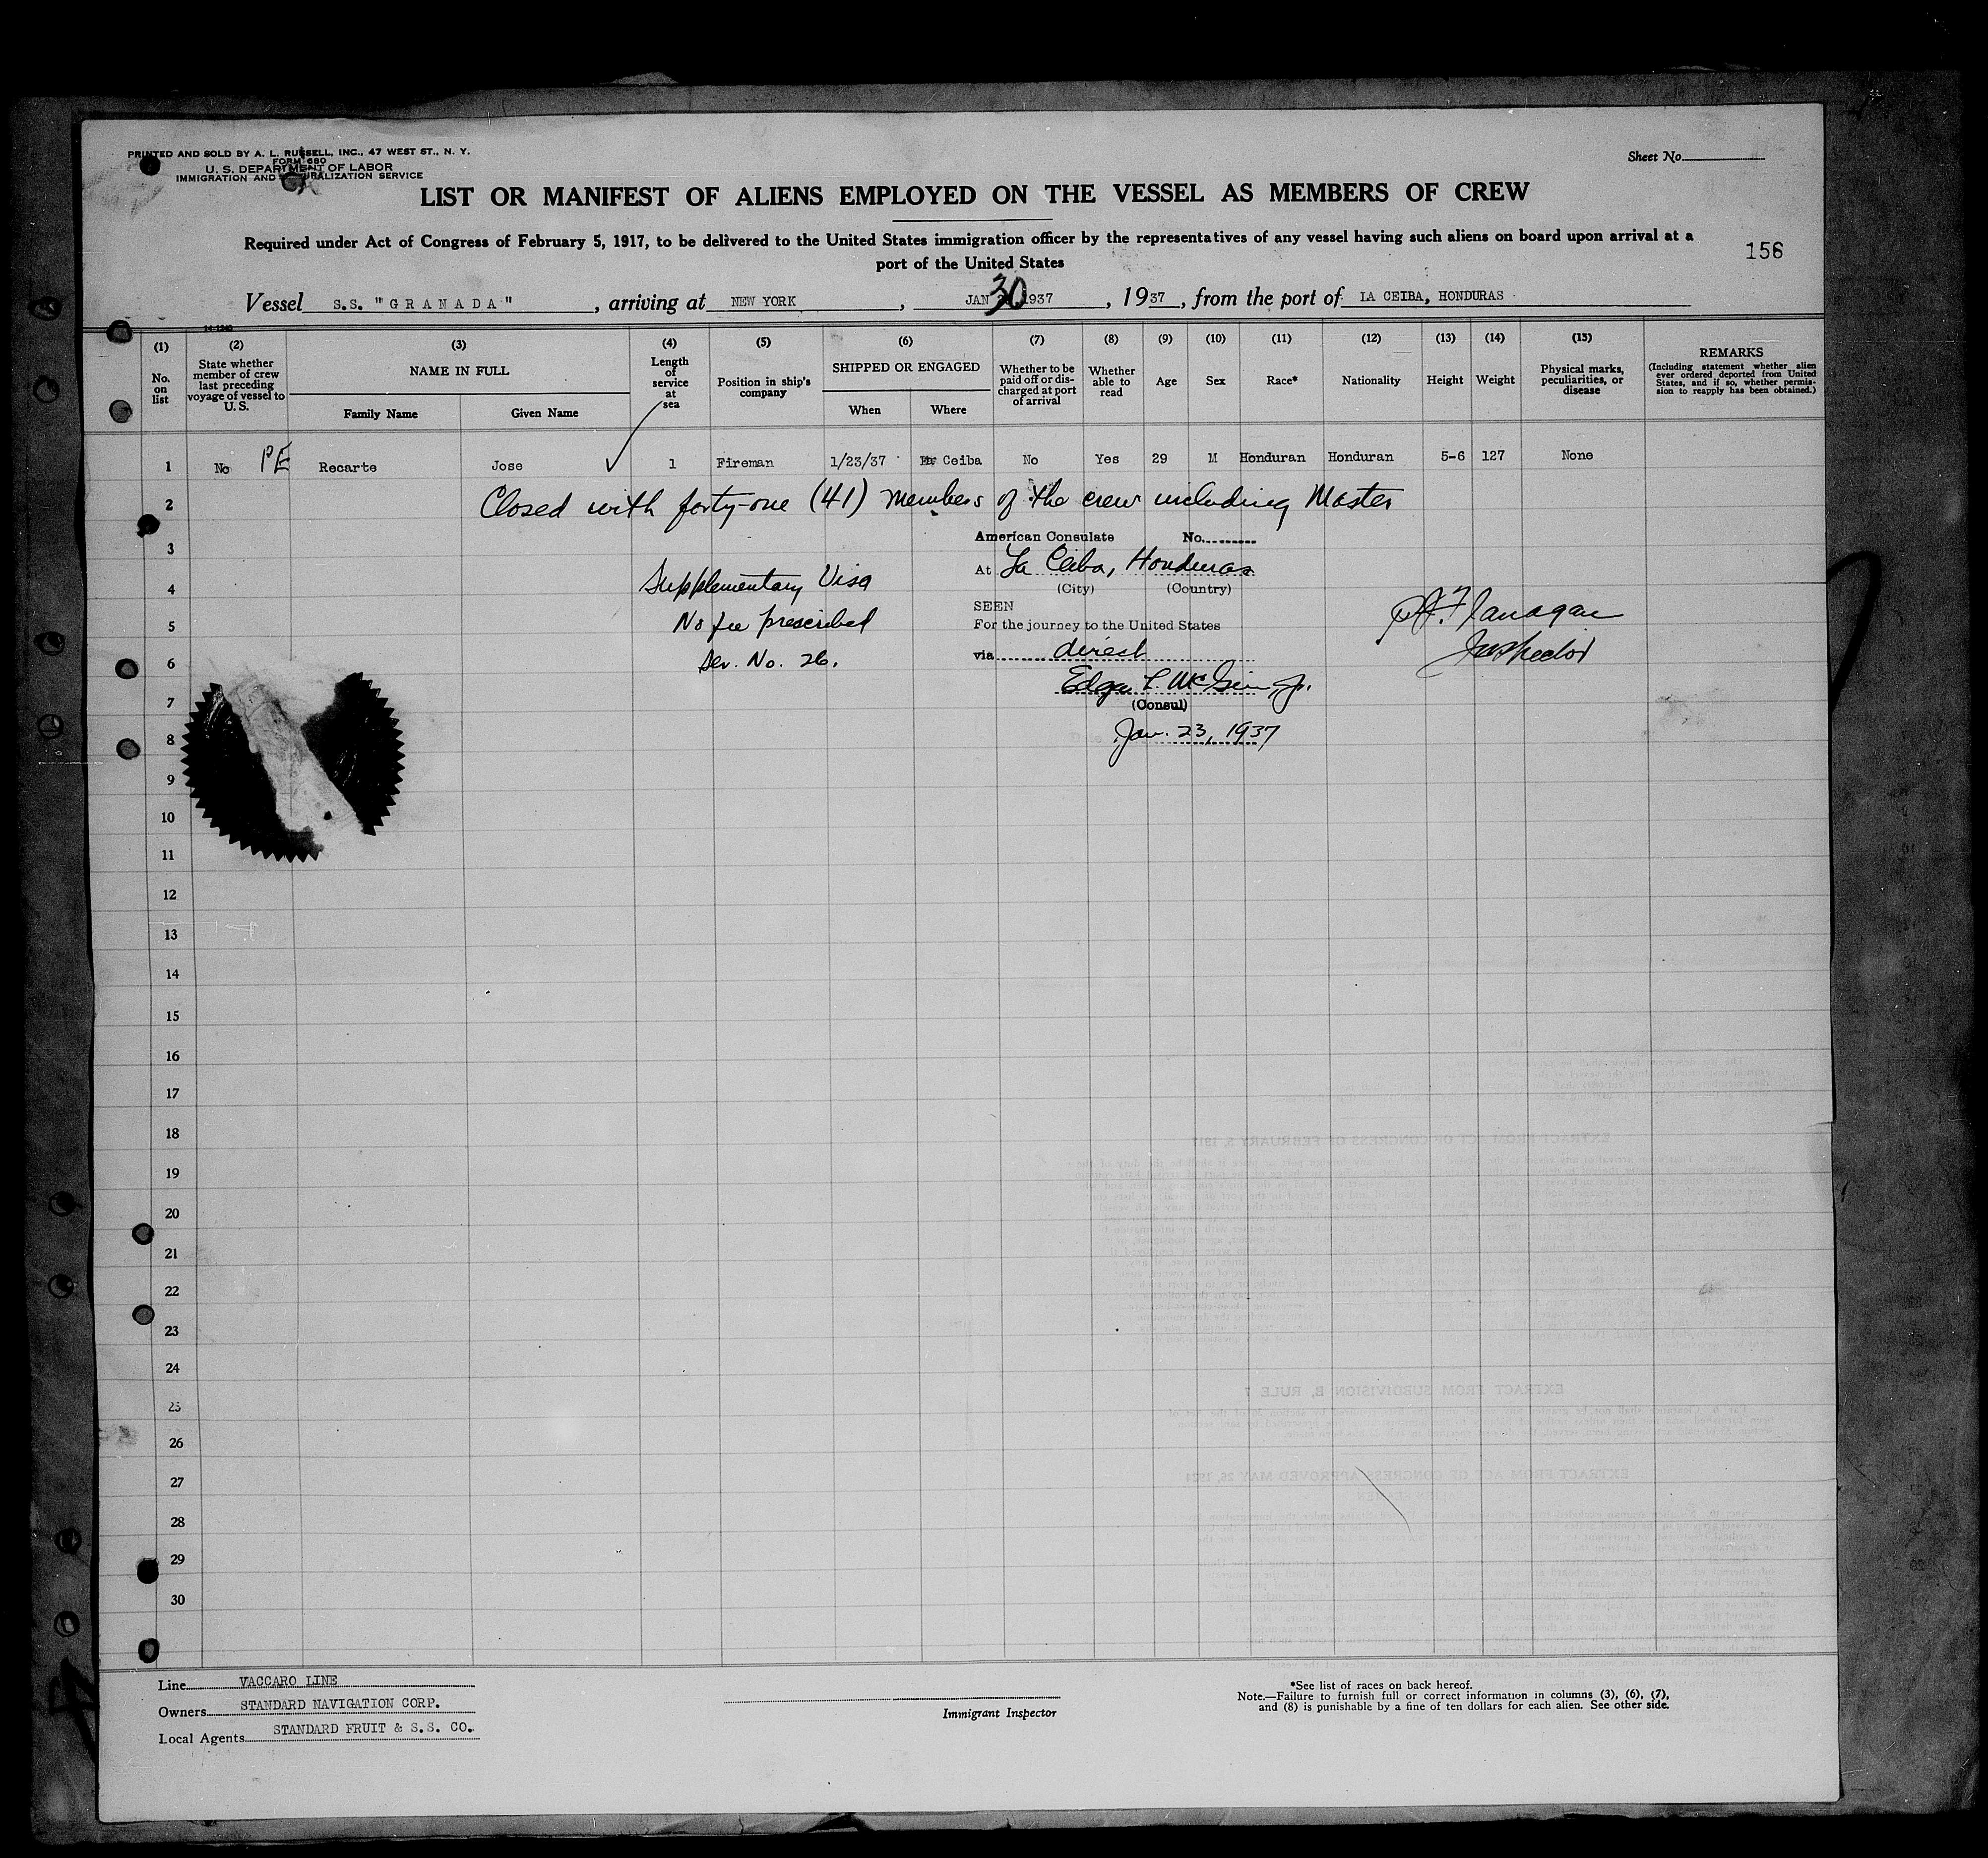 PRINTED AND SOLD BY A. L. RUSSELL, INC., 47 WEST ST., N. Y.
FORM 680
U. S. DEPARTMENT OF LABOR
IMMIGRATION AND NATURALIZATION SERVICE
Sheet No.
LIST OR MANIFEST OF ALIENS EMPLOYED ON THE VESSEL AS MEMBERS OF CREW
Required under Act of Congress of February 5, 1917, to be delivered to the United States immigration officer by the representatives of any vessel having such aliens on board upon arrival at a
port of the United States
156
Vessel S.S. "GRANADA", arriving at NEW YORK, JAN 30 1937, 1937, from the port of LA CEIBA, HONDURAS
14-1240
(1) No. on list
(2) State whether member of crew last preceding voyage of vessel to U. S.
(3) NAME IN FULL
Family Name Given Name
(4) Length of service at sea
(5) Position in ship's company
(6) SHIPPED OR ENGAGED
When Where
(7) Whether to be paid off or discharged at port of arrival
(8) Whether able to read
(9) Age
(10) Sex
(11) Race*
(12) Nationality
(13) Height
(14) Weight
(15) Physical marks, peculiarities, or disease
REMARKS
(Including statement whether alien ever ordered deported from United States, and if so, whether permission to reapply has been obtained.)
1 No PE Recarte Jose 1 Fireman 1/23/37 Ceiba No Yes 29 M Honduran Honduran 5-6 127 None
2 Closed with forty-one (41) members of the crew including Master
3 American Consulate No.
At La Ceiba, Honduras
4 (City) (Country)
Supplementary Visa
SEEN
5 For the journey to the United States
No fee prescribed
6 via direct
Ser. No. 26.
Flanagan
Inspector
Edgar L. McGinnis, Jr.
7 (Consul)
8 Jan. 23, 1937
9
10
11
12
13
14
15
16
17
18
19
20
21
22
23
24
25
26
27
28
29
30
Line VACCARO LINE
Owners STANDARD NAVIGATION CORP.
Local Agents STANDARD FRUIT & S.S. CO.
Immigrant Inspector
*See list of races on back hereof.
Note.—Failure to furnish full or correct information in columns (3), (6), (7),
and (8) is punishable by a fine of ten dollars for each alien. See other side.